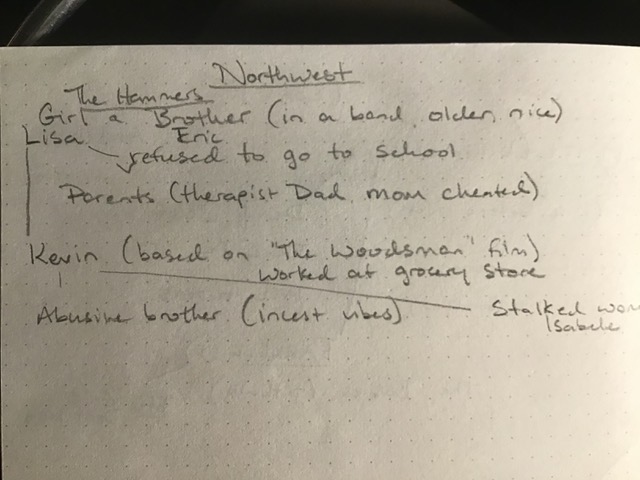 Northwest
The Hammers
Girl a Brother (in a band, older, nice)
Lisa Eric
refused to go to school
Parents (therapist Dad, mom cheated)
Kevin (based on "The Woodsman" film)
worked at grocery store
Abusive brother (incest vibes)
Stalked
Isabele